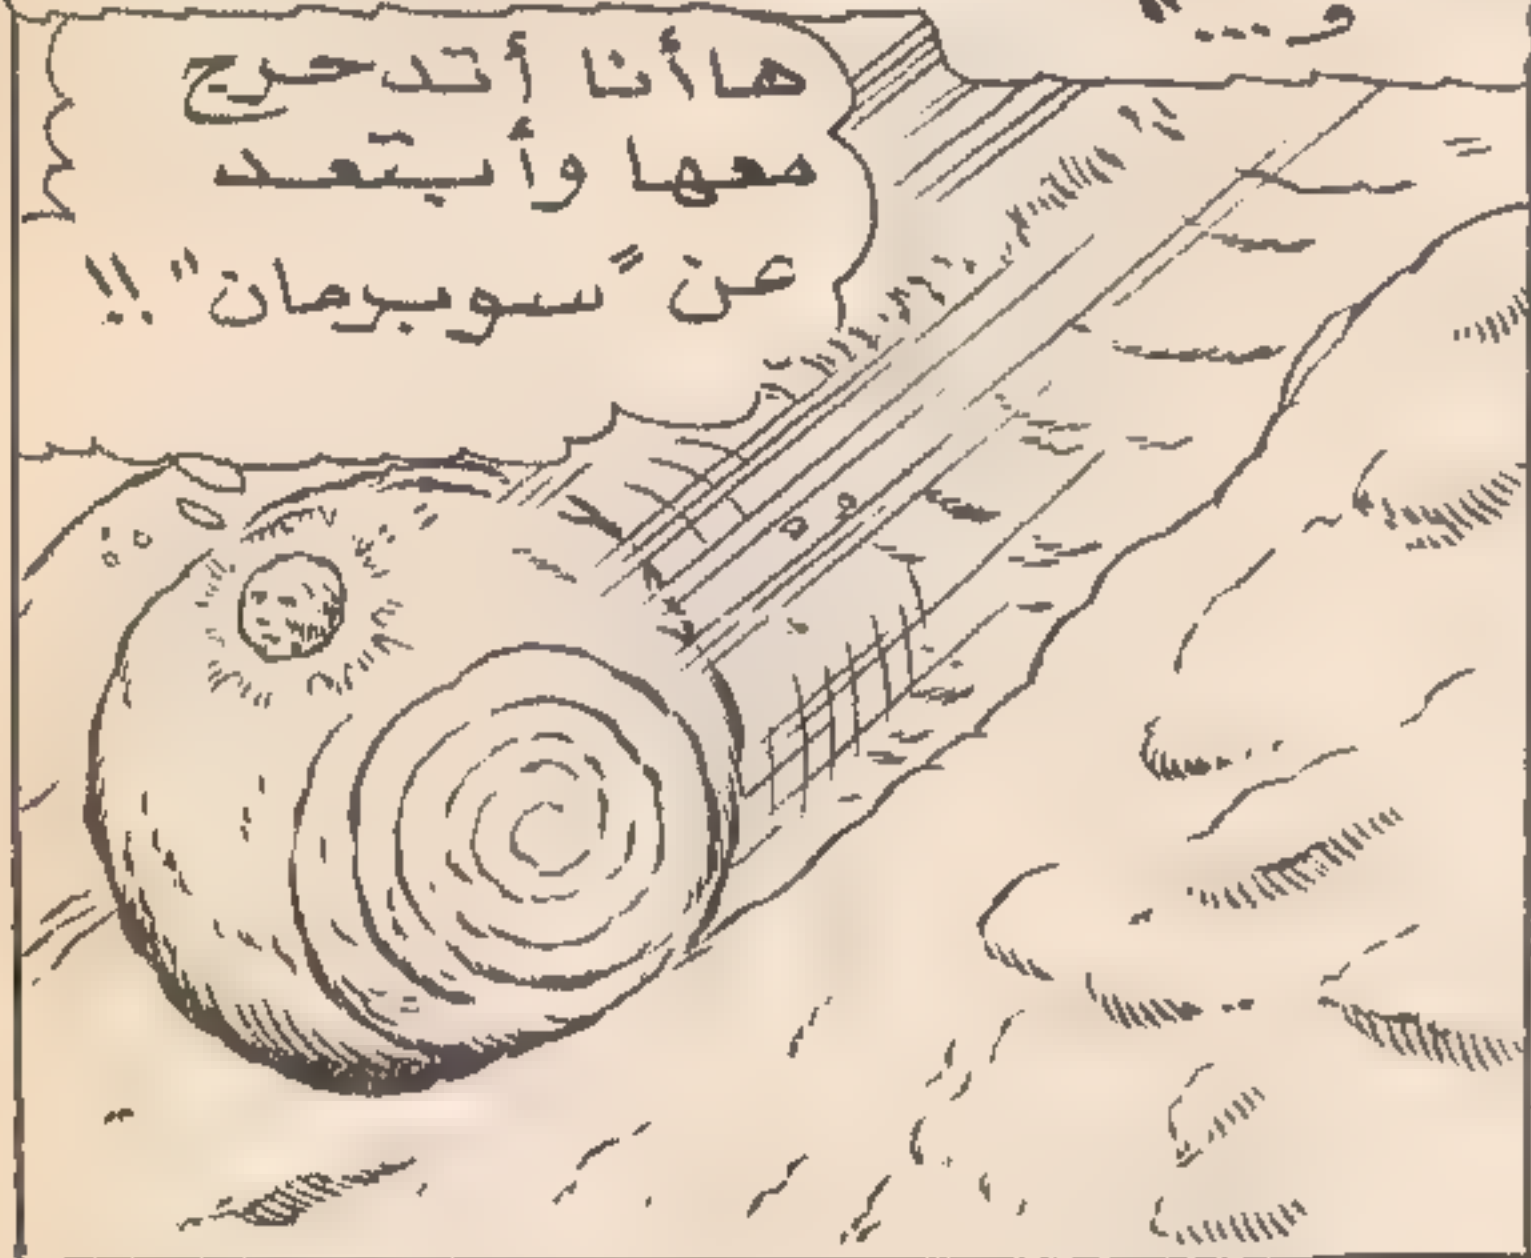 و..."
هاأنا أتدحرج
معها وأبتعد
عن "سوبرمان"!!